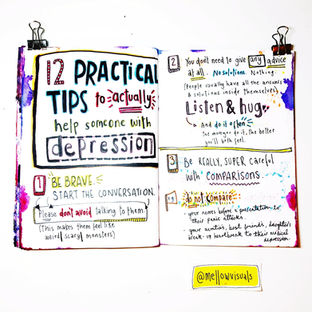 12 PRACTICAL
TIPS to actually
help someone with
depression
1 BE BRAVE.
START THE CONVERSATION.
Please don't avoid talking to them
(This makes them feel like
weird/scary/monsters)
2 You don't need to give any advice
at all. No solutions. Nothing.
(People usually have all the answers
& solutions inside themselves)
Listen & hug
And do it often
the longer do it, the better
you'll both feel.
3 Be REALLY, SUPER careful
with COMPARISONS.
do not compare
- your nerves before a presentation to
their panic attacks.
- your aunties, best friends, daughter's
break-up heartbreak to their medical
depression.
@mellowvisuals